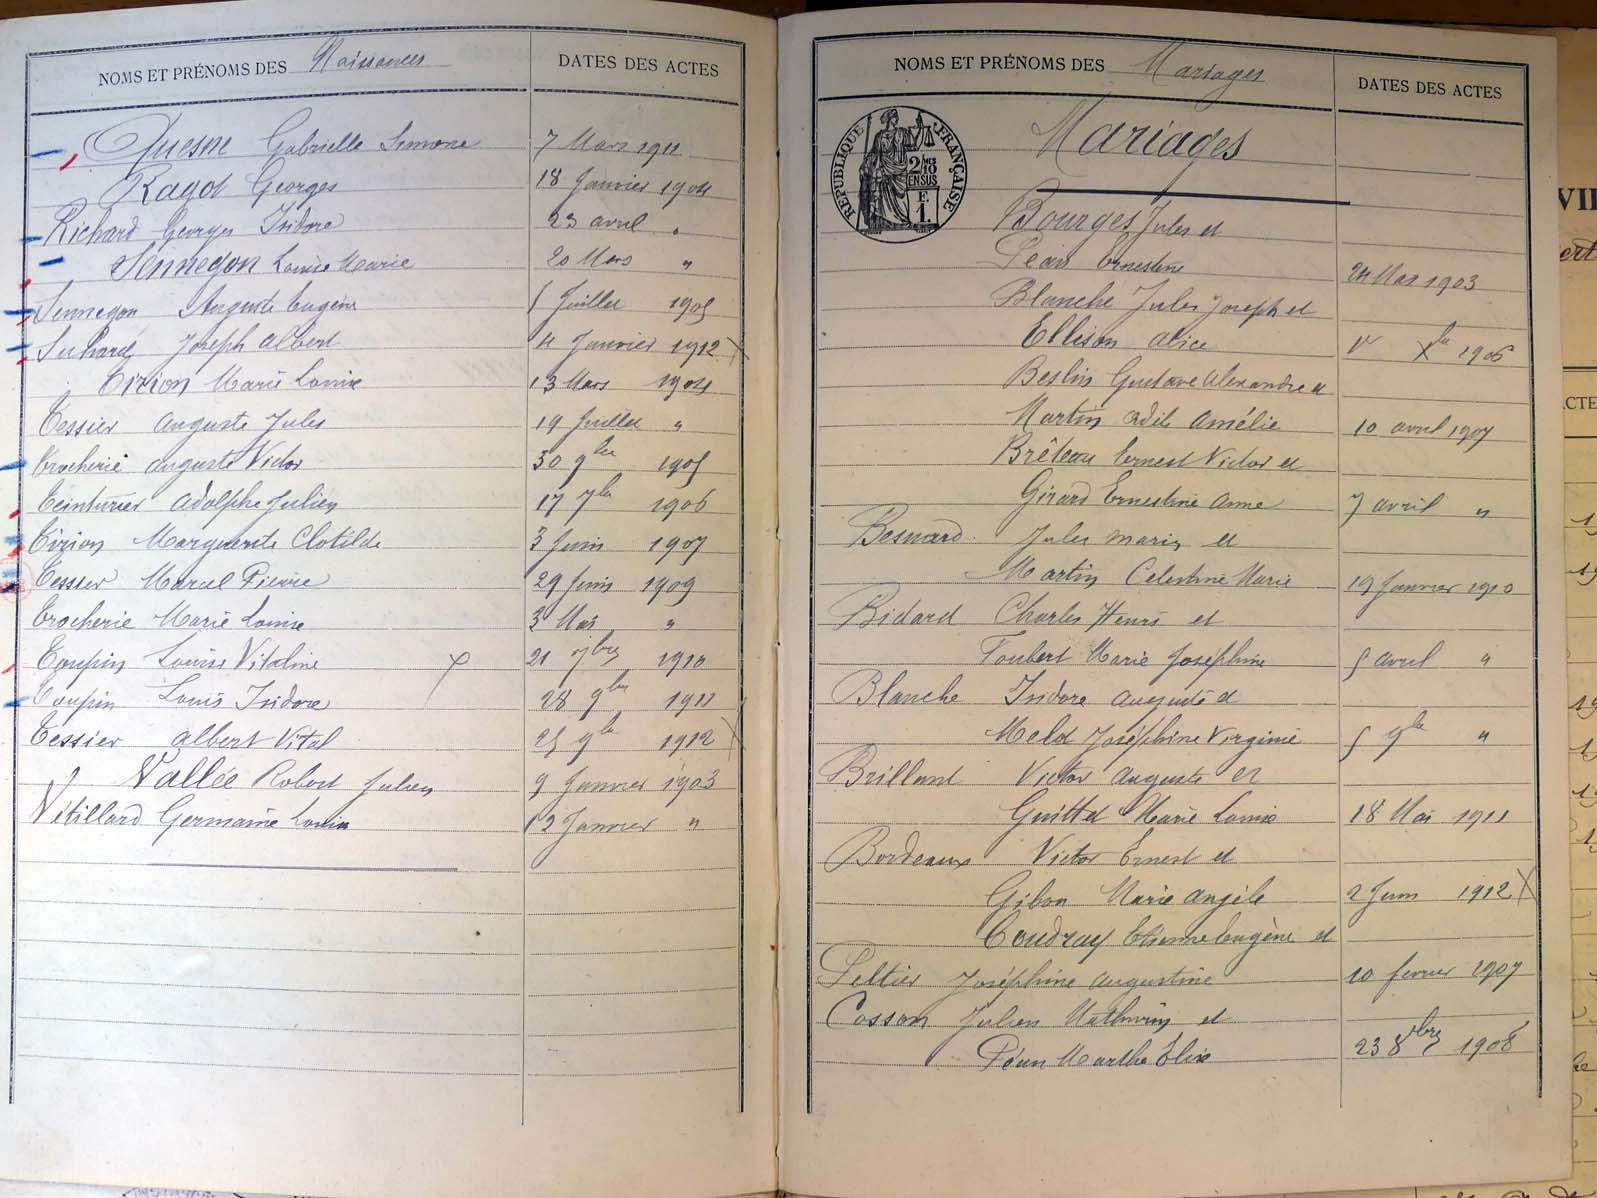 NOMS ET PRÉNOMS DES Naissances DATES DES ACTES
Quesne Gabrielle Simone 7 Mars 1911
Ragot Georges 18 Janvier 1904
Richard Georges Isidore 23 avril "
Sennegon Louise Marie 20 Mars "
Sennegon Auguste Eugène 5 Juillet 1905
Suhard Joseph Albert 4 Janvier 1912 X
Tirion Marie Louise 13 Mars 1904
Tessier Auguste Jules 19 Juillet "
Trocherie Auguste Victor 30 9bre 1905
Teinturier Adolphe Julien 17 7bre 1906
Tirion Marguerite Clotilde 3 Juin 1907
Tessier Marcel Pierre 29 Juin 1909
Trocherie Marie Louise 3 Mai "
Toupin Louise Vitaline X 21 7bre 1910
Toupin Louis Isidore 28 9bre 1911
Tessier Albert Vital 25 9bre 1912 X
Vallée Robert Julien 9 Janvier 1903
Vétillard Germaine Louise 12 Janvier "
NOMS ET PRÉNOMS DES Mariages DATES DES ACTES
RÉPUBLIQUE FRANÇAISE
2/10 EN SUS
F. 1.
Mariages
Bourges Jules et
Péan Ernestine 24 Mars 1903
Blanche Jules Joseph et
Ellison Alice 1er Xbre 1906
Beslin Gustave Alexandre et
Martin Odile Amélie 10 avril 1907
Brêteau Ernest Victor et
Girard Ernestine Anne 7 avril "
Besnard Jules Marin et
Martin Celestine Marie 19 Janvier 1910
Bidard Charles Henri et
Foubert Marie Joséphine 5 avril "
Blanche Isidore Auguste et
Melot Joséphine Virginie 5 9bre "
Brillant Victor Auguste et
Guittet Marie Louise 18 Mai 1911
Bordeaux Victor Ernest et
Gibon Marie Angèle 2 Juin 1912 X
Coudray Etienne Eugène et
Peltier Joséphine Augustine 10 fevrier 1907
Cosson Julien Mathurin et
Péan Marthe Elise 23 8bre 1908